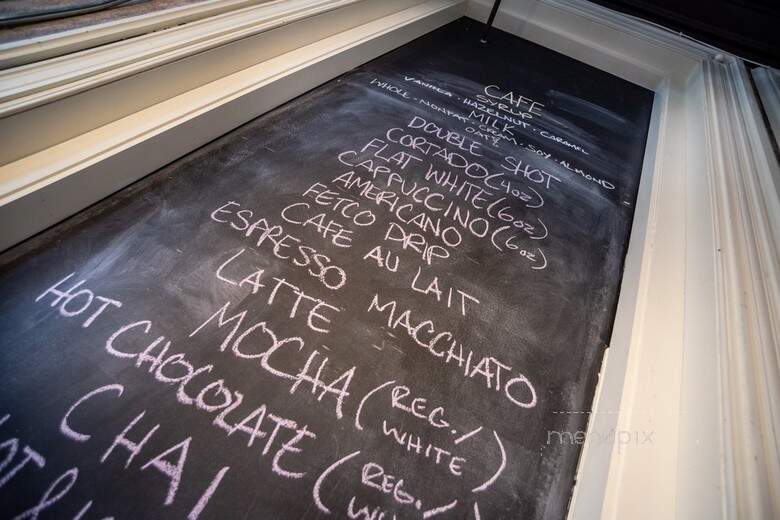 CAFE
SYRUP
VANILLA · HAZELNUT · CARAMEL
MILK
WHOLE · NONFAT · CREAM · SOY · ALMOND
OATLY
DOUBLE SHOT
CORTADO (4oz)
FLAT WHITE (6oz)
CAPPUCCINO (6oz)
AMERICANO
FETCO DRIP
CAFE AU LAIT
ESPRESSO MACCHIATO
LATTE
MOCHA (REG./ WHITE)
HOT CHOCOLATE (REG./
CHAI
menupix